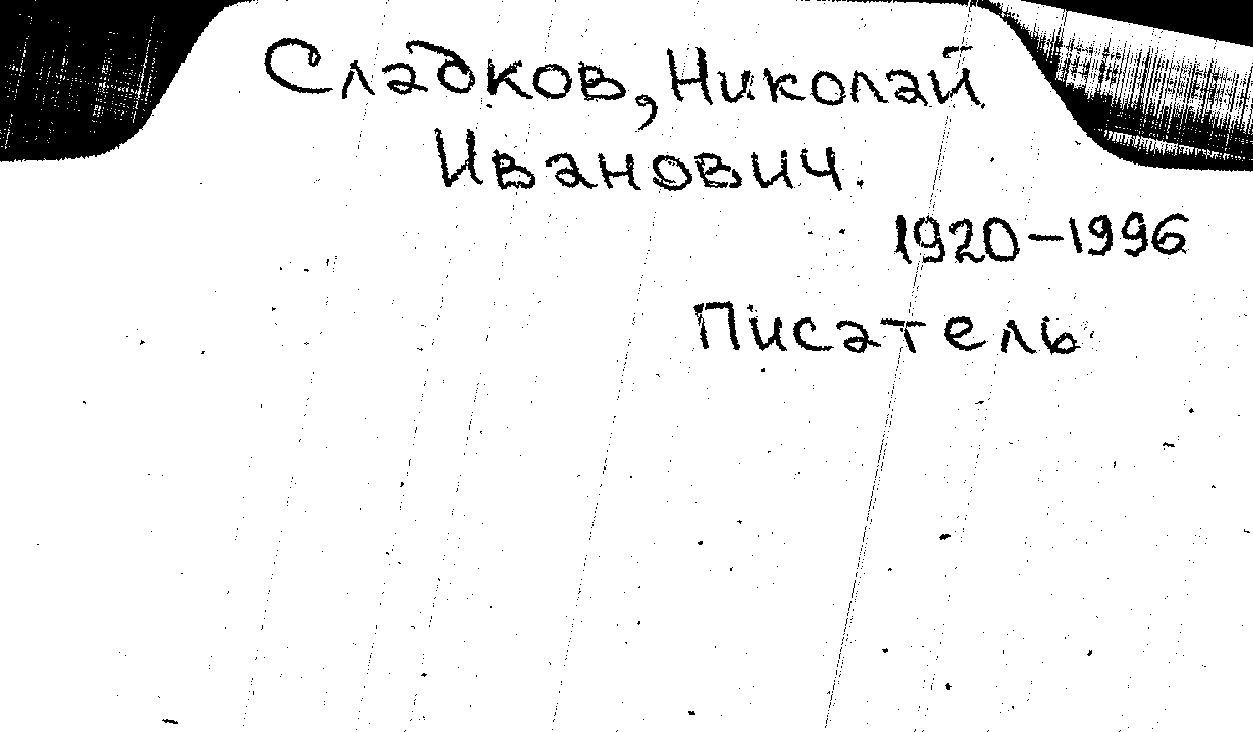 Сладков, Николай
Иванович.
1920-1996
Писатель